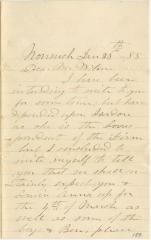 Norwich Jan 28th 85
Dear Mr.
I have been
intending to write to you
for some time, but have
depended upon
as she is the
of the
but I concluded to
write myself to tell
you that we shall
certainly expect you &
Anna up for
the 4th of March as
well as some of the
boys & Ben, please